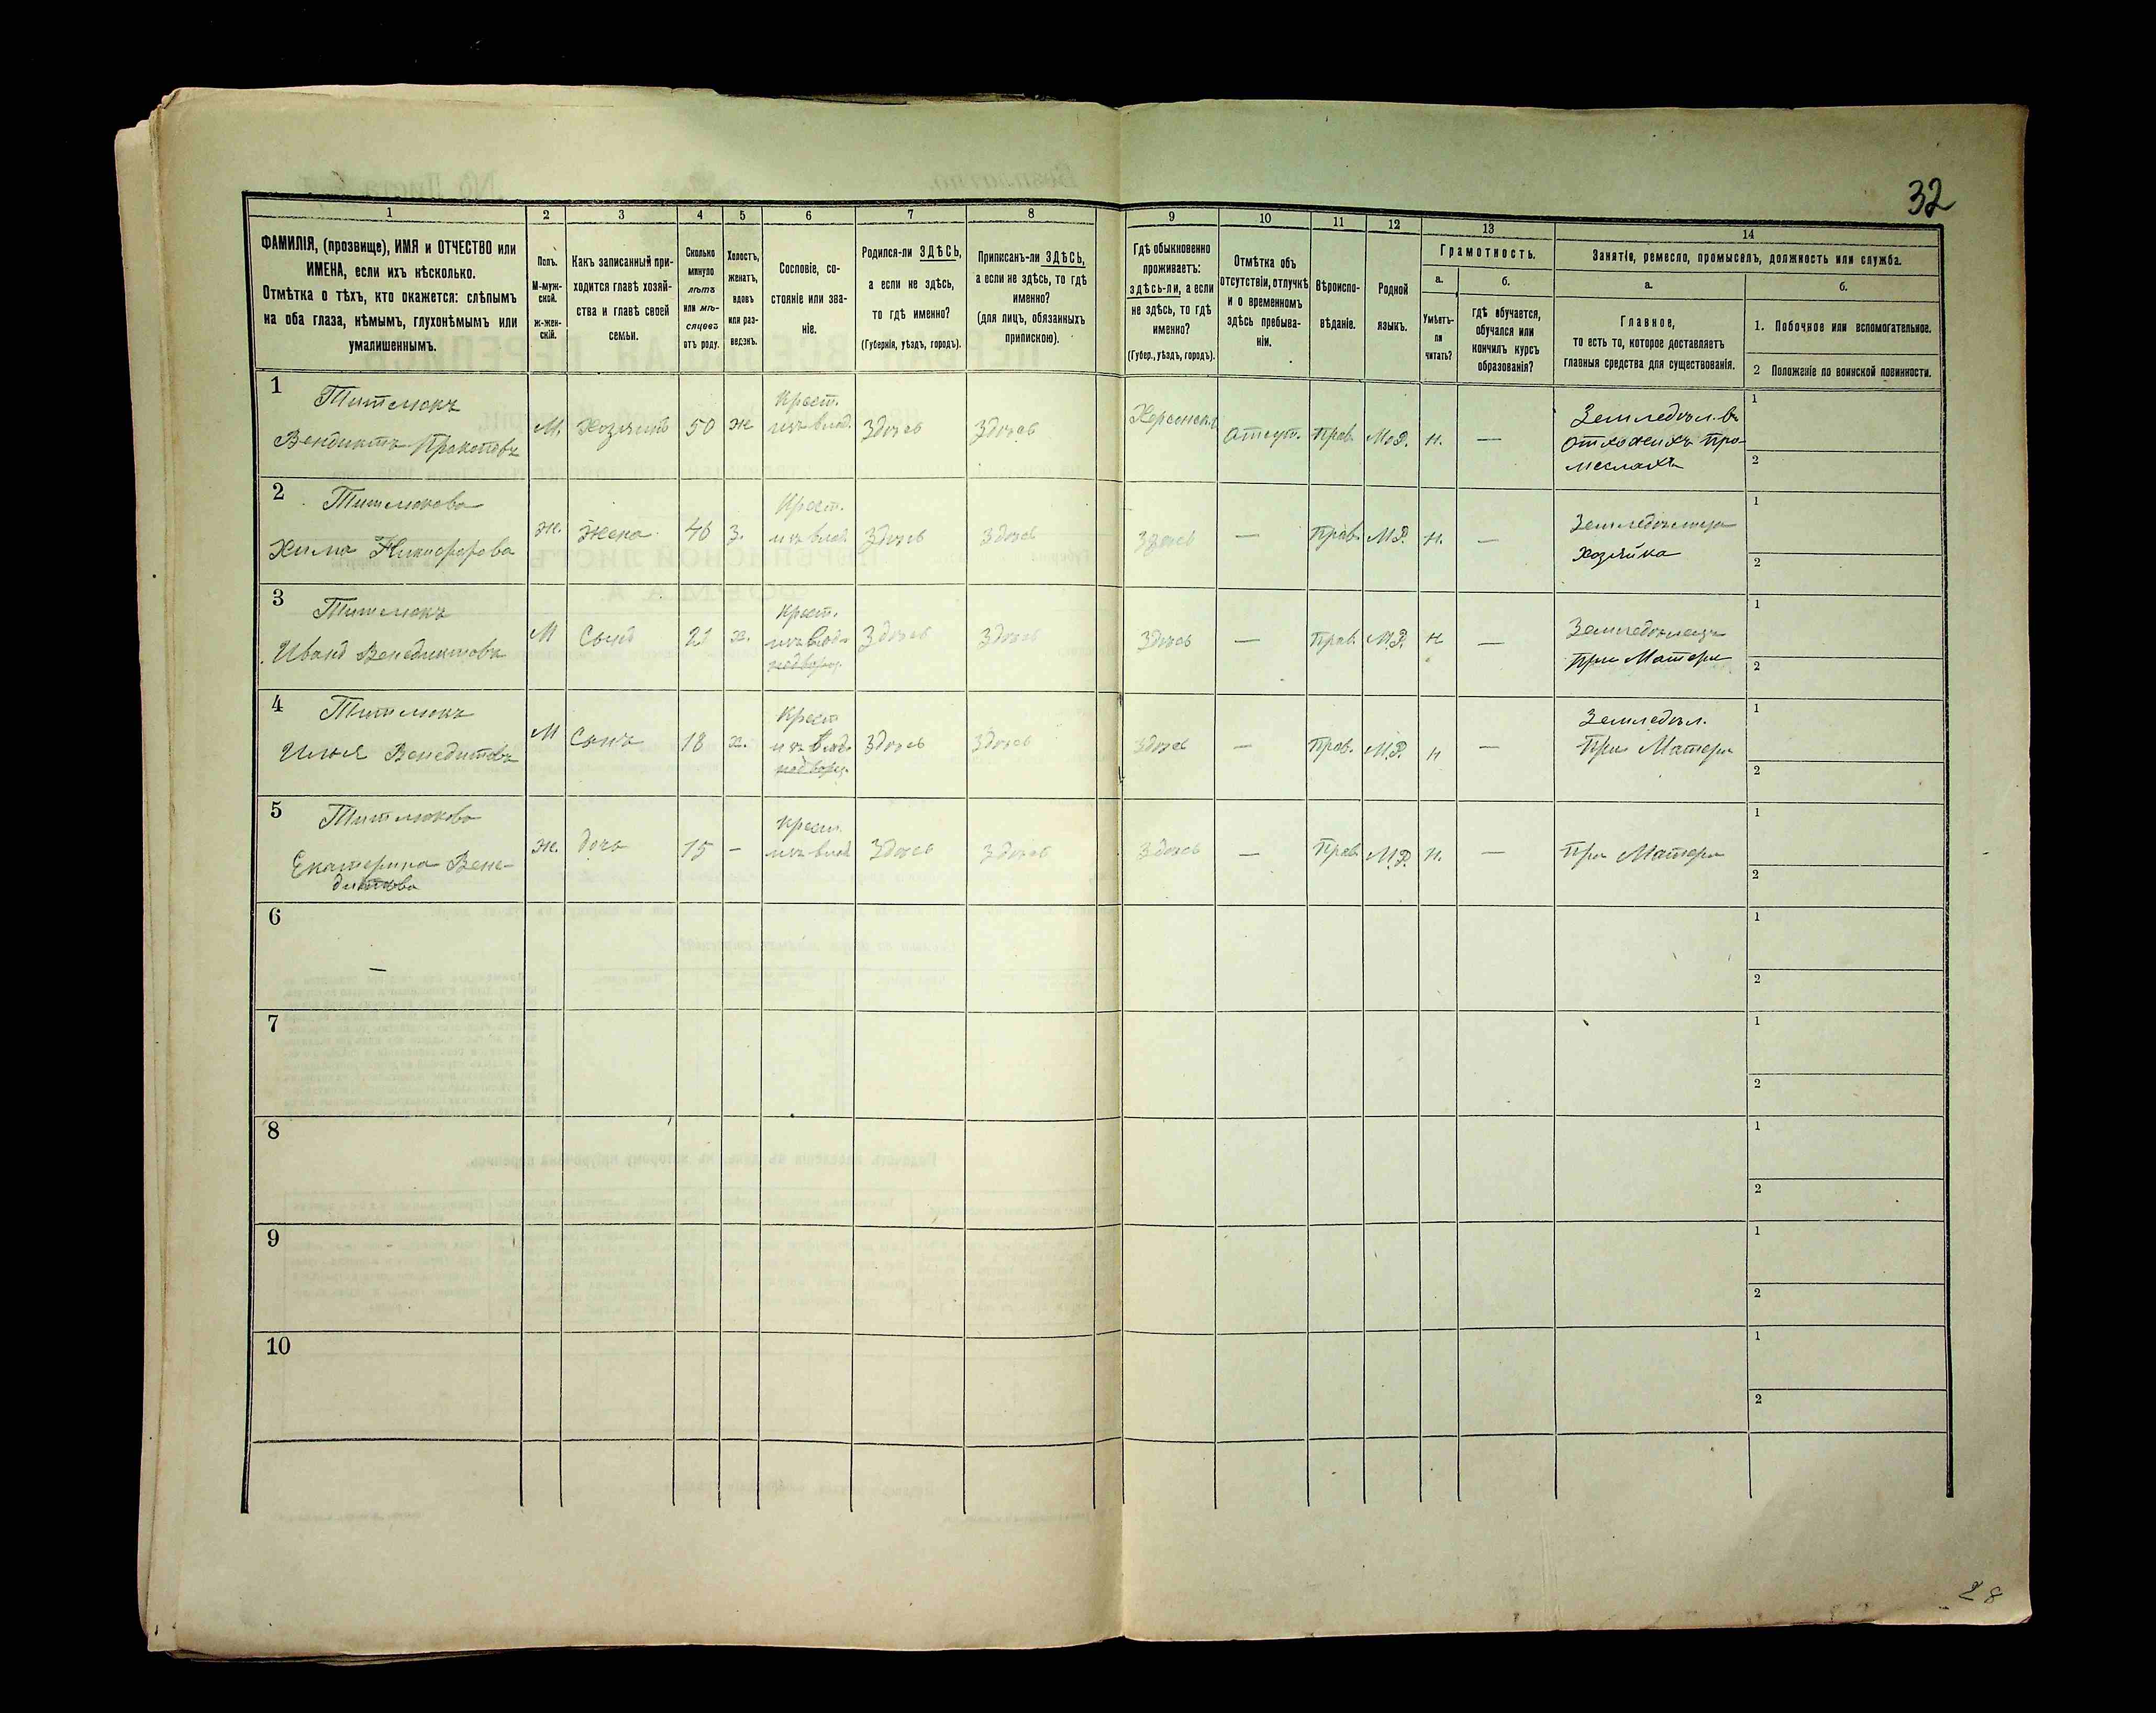 32
1 2 3 4 5 6 7 8 9 10 11 12 13 14
ФАМИЛІЯ, (прозвище), ИМЯ и ОТЧЕСТВО или
ИМЕНА, если ихъ нѣсколько.
Отмѣтка о тѣхъ, кто окажется: слѣпымъ
на оба глаза, нѣмымъ, глухонѣмымъ или
умалишеннымъ.
Полъ.
М-муж-
ской.
ж-жен-
скій.
Какъ записанный при-
ходится главѣ хозяй-
ства и главѣ своей
семьи.
Сколько
минуло
лѣтъ
или мѣ-
сяцевъ
отъ роду.
Холостъ,
женатъ,
вдовъ
или раз-
веденъ.
Сословіе, со-
стояніе или зва-
ніе.
Родился-ли ЗДѢСЬ,
а если не здѣсь,
то гдѣ именно?
(Губернія, уѣздъ, городъ).
Приписанъ-ли ЗДѢСЬ,
а если не здѣсь, то гдѣ
именно?
(для лицъ, обязанныхъ
припискою).
Гдѣ обыкновенно
проживаетъ:
здѣсь-ли, а если
не здѣсь, то гдѣ
именно?
(Губер., уѣздъ, городъ).
Отмѣтка объ
отсутствіи, отлучкѣ
и о временномъ
здѣсь пребыва-
ніи.
Вѣроиспо-
вѣданіе.
Родной
языкъ.
Грамотность.
а.
Умѣетъ-
ли
читать?
б.
гдѣ обучается,
обучался или
кончилъ курсъ
образованія?
Занятіе, ремесло, промыселъ, должность или служба.
а.
Главное,
то есть то, которое доставляетъ
главныя средства для существованія.
б.
1. Побочное или вспомогательное.
2 Положеніе по воинской повинности.
1
Титмокъ
Вендиктъ Прокоповъ
М.
хозяинъ
50
ж
Крест.
изъ влад.
Здѣсь
Здѣсь
Херсонск.
отсут.
Прав.
М.Р.
н.
—
Земледѣл. въ
отхожихъ про-
меслахъ
1
2
2
Титмокова
Хима Никифорова
ж.
жена
46
з.
Крест.
изъ влад.
Здѣсь
Здѣсь
Здѣсь
—
Прав.
М.Р.
н.
—
хозяйка
1
2
3
Титмокъ
Иванъ Венедиктовъ
М
Сынъ
х.
Крест.
изъ влад.
Здѣсь
Здѣсь
Здѣсь
—
Прав.
М.Р.
н
—
Земледѣлецъ
при Матери
1
2
4
Титмокъ
Илья Венедитовъ
М
Сынъ
18
х.
Крест
изъ влад.
Здѣсь
Здѣсь
Здѣсь
—
Прав.
М.Р.
н
—
Земледѣл.
при Матери
1
2
5
Титмокова
Екатерина Вене-
дитова
ж.
дочь
15
—
Крест.
изъ влад
Здѣсь
Здѣсь
Здѣсь
—
Прав.
М.Р.
н.
—
при Матери
1
2
6
—
1
2
7
1
2
8
1
2
9
1
2
10
1
2
28